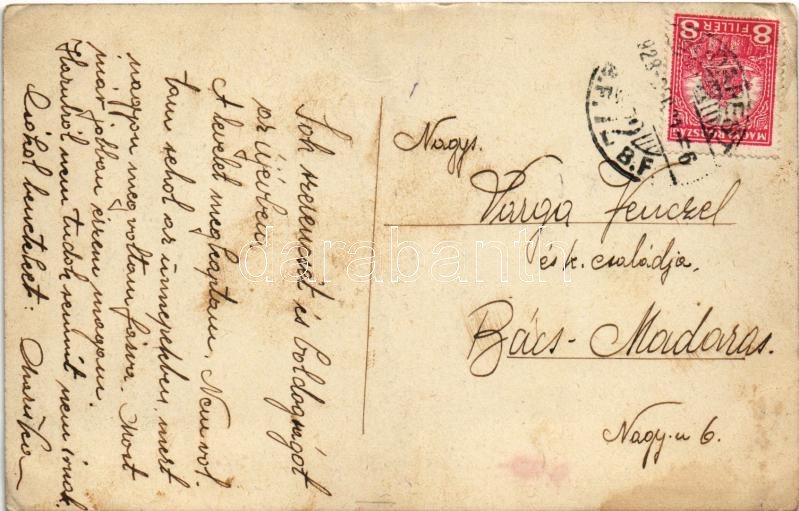 Sok szerencsét és boldogságot
az újévben
A levelet megkaptam. Nem vol-
tam sehol az ünnepekben, mert
nagyon meg voltam fázva. Most
már jobban érzem magam.
nem tudok semmit nem írnak.
Csókol benneteket: Mariska
Nagys.
Varga Jenczel
és k. családja,
Bács-Madaras.
Nagy-u 6.
8 FILLÉR 8
MAGYARORSZÁG
928
B.F
darabanth